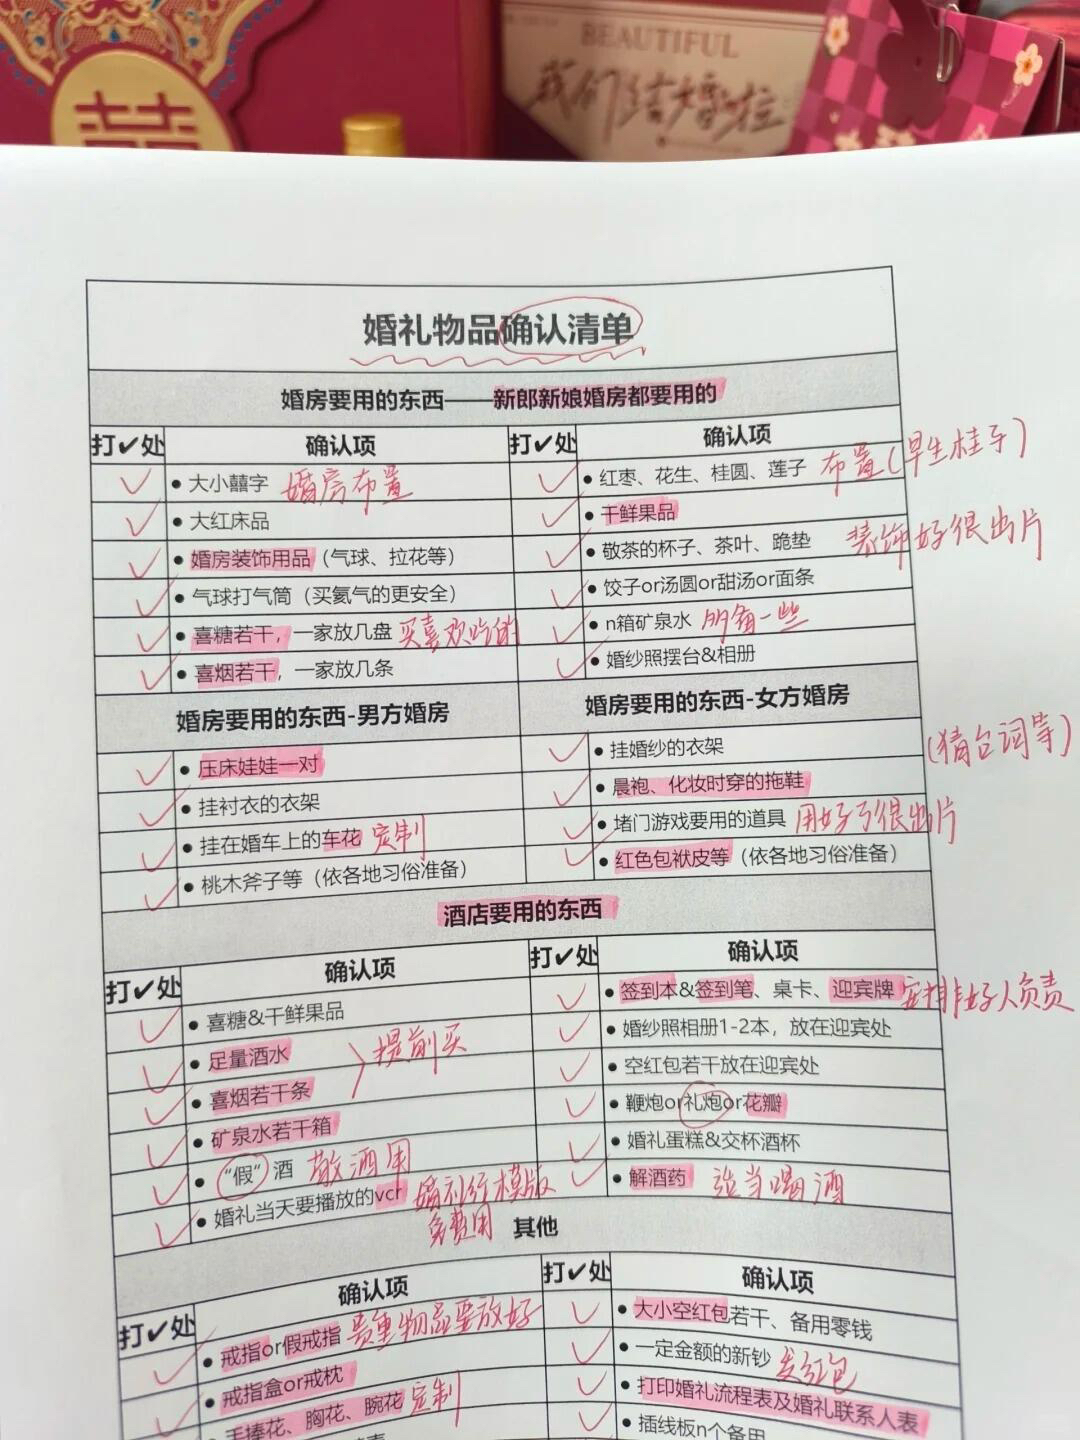 囍
BEAUTIFUL
我们结婚啦
婚礼物品确认清单
婚房要用的东西——新郎新娘婚房都要用的
打✔处 确认项 打✔处 确认项
• 大小囍字 婚房布置
• 红枣、花生、桂圆、莲子 布置(早生桂子)
• 大红床品
• 干鲜果品
• 婚房装饰用品（气球、拉花等）
• 敬茶的杯子、茶叶、跪垫 装饰好很出片
• 气球打气筒（买氦气的更安全）
• 饺子or汤圆or甜汤or面条
• 喜糖若干，一家放几盘 买喜欢吃的
• n箱矿泉水 多备一些
• 喜烟若干，一家放几条
• 婚纱照摆台&相册
婚房要用的东西-男方婚房
婚房要用的东西-女方婚房
• 压床娃娃一对
• 挂婚纱的衣架
• 挂衬衣的衣架
• 晨袍、化妆时穿的拖鞋
• 挂在婚车上的车花 定制
• 堵门游戏要用的道具 用好了很出片
(猜台词等)
• 桃木斧子等（依各地习俗准备）
• 红色包袱皮等（依各地习俗准备）
酒店要用的东西
打✔处 确认项 打✔处 确认项
• 喜糖&干鲜果品
• 签到本&签到笔、桌卡、迎宾牌 安排好人负责
• 足量酒水
• 婚纱照相册1-2本，放在迎宾处
• 喜烟若干条
提前买
• 空红包若干放在迎宾处
• 矿泉水若干箱
• 鞭炮or礼炮or花瓣
• “假”酒 敬酒用
• 婚礼蛋糕&交杯酒杯
• 婚礼当天要播放的vcr 婚礼行模版
免费用
• 解酒药 适当喝酒
其他
打✔处 确认项 打✔处 确认项
• 戒指or假戒指 贵重物品要放好
• 大小空红包若干、备用零钱
• 戒指盒or戒枕
• 一定金额的新钞 发红包
• 手捧花、胸花、腕花 定制
• 打印婚礼流程表及婚礼联系人表
• 插线板n个备用